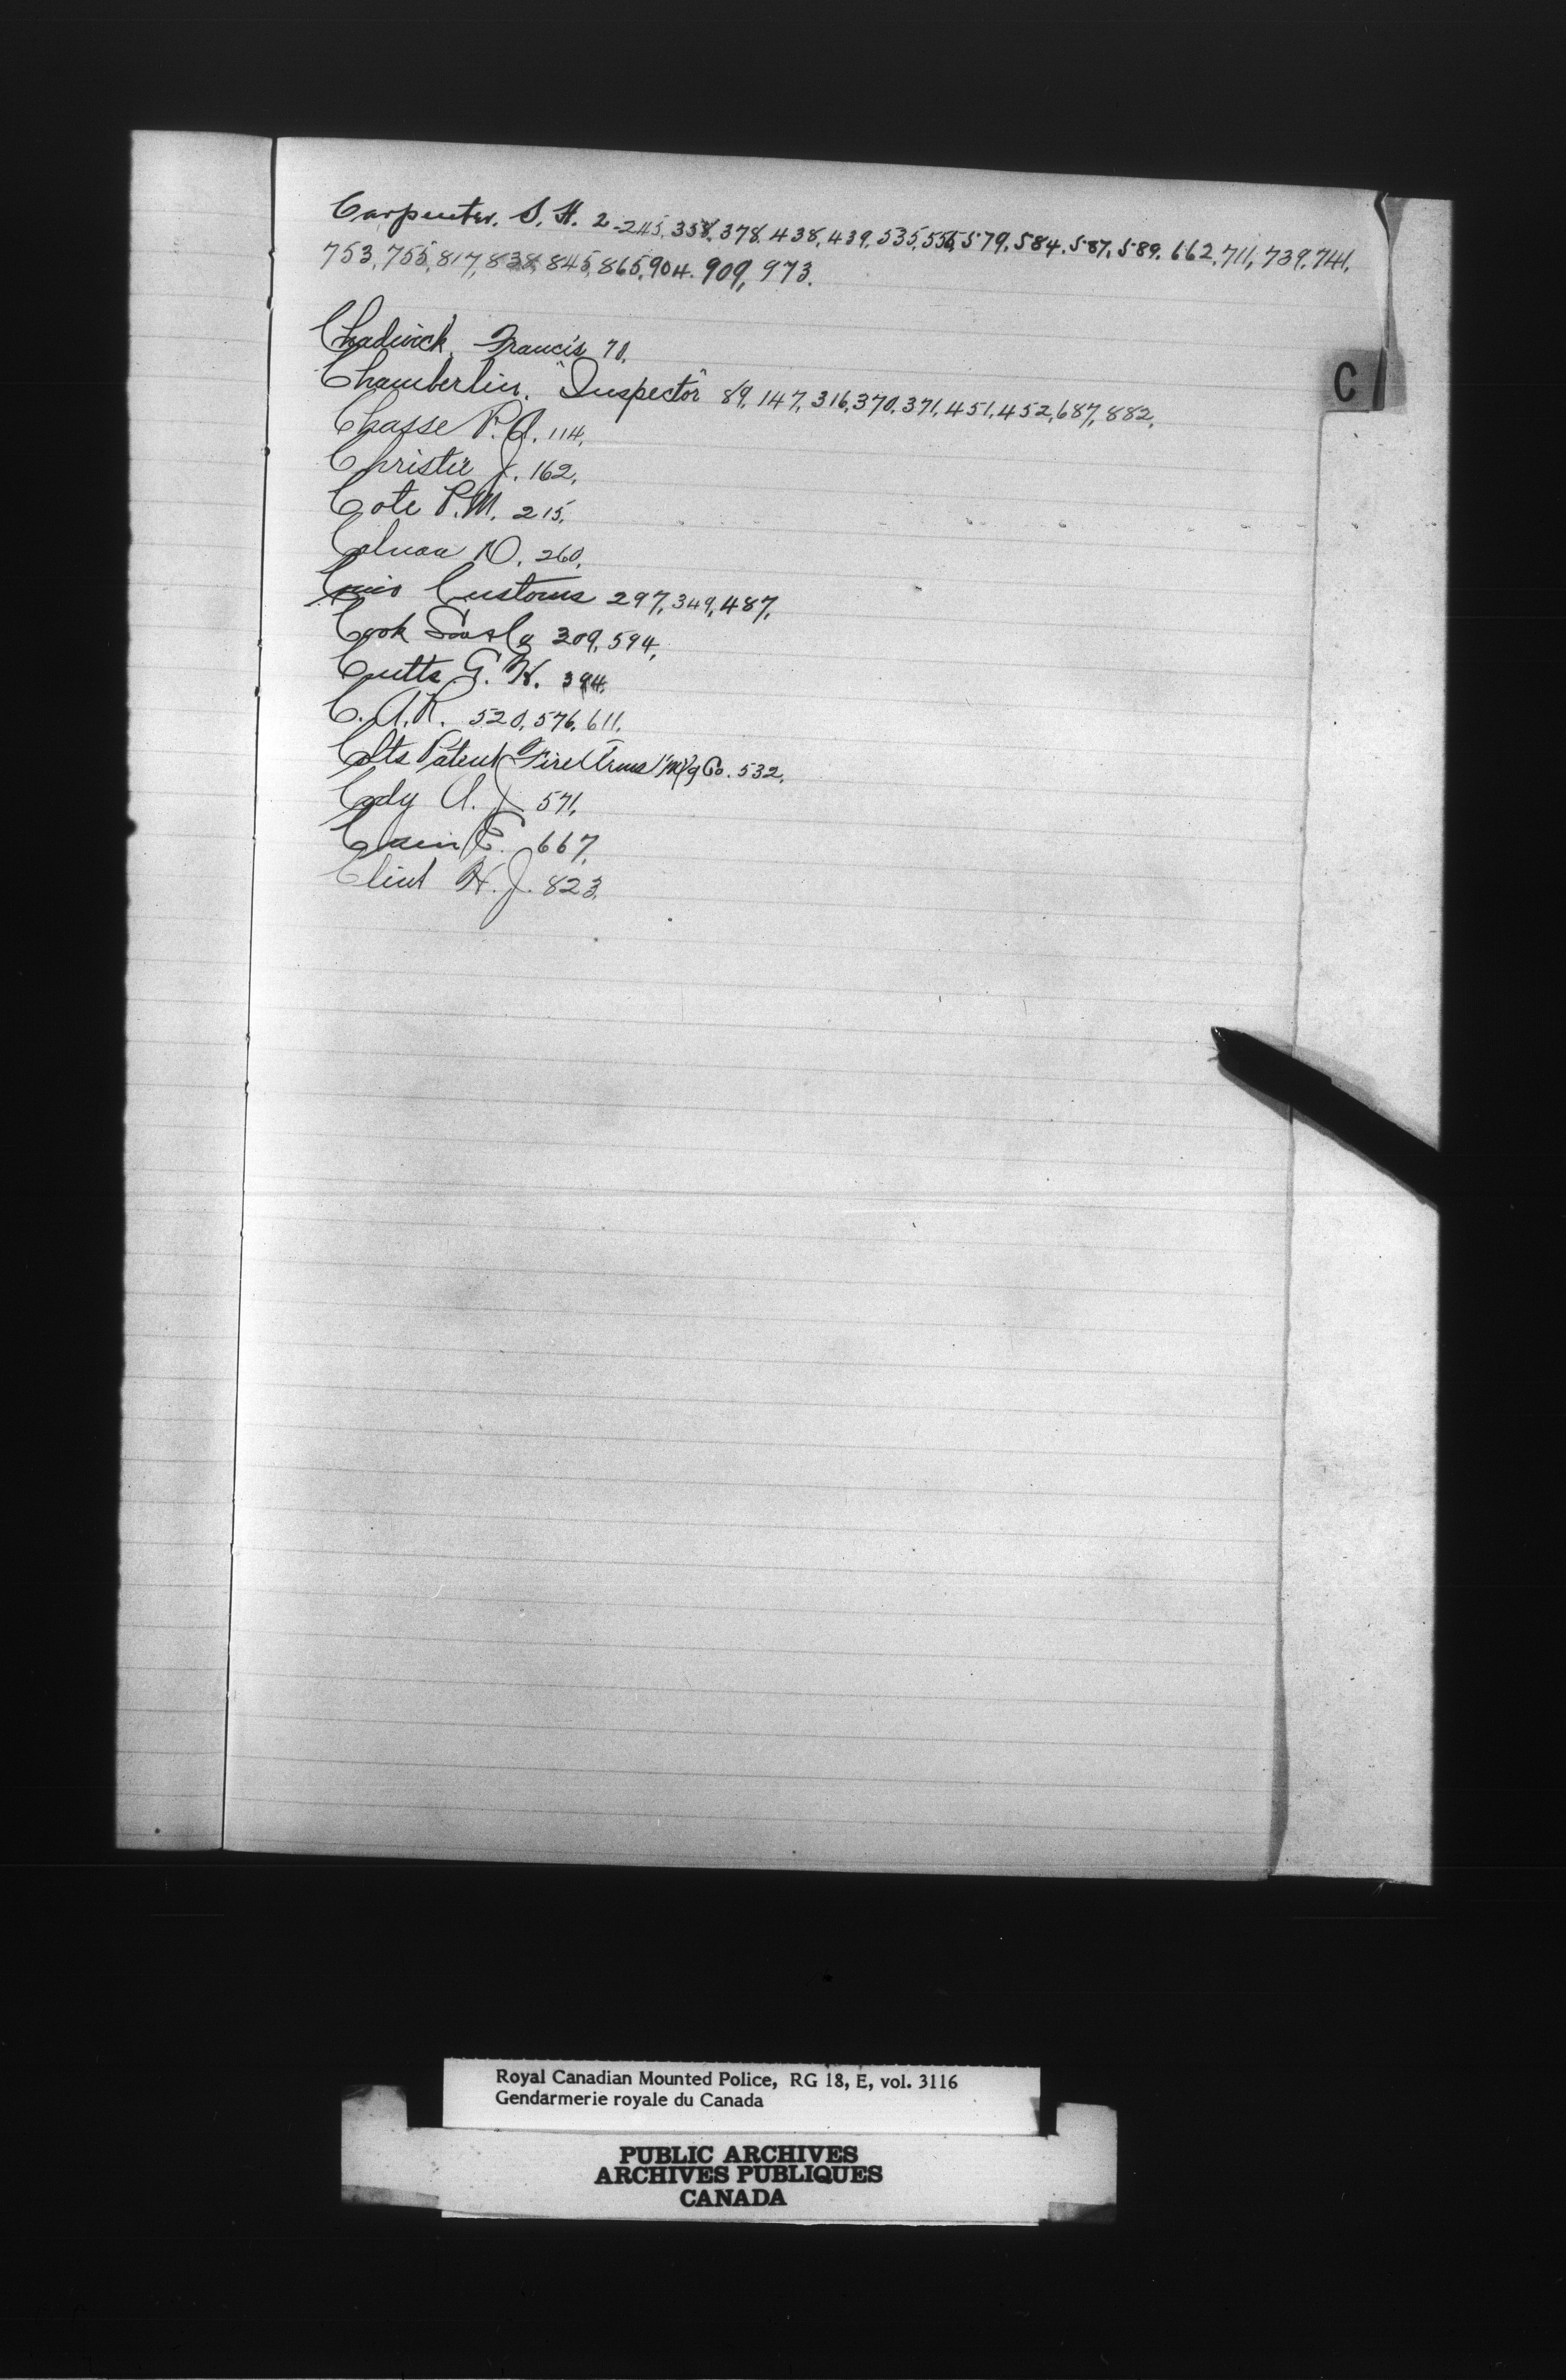 Carpenter. S. H. 2-245, 358, 378, 438, 439, 535, 556, 579, 584, 587, 589, 662, 711, 739, 741,
753, 755, 817, 838, 845, 865, 904. 909, 973.
Chadwick, Francis 70,
Chamberlin. "Inspector" 89, 147, 316, 370, 371, 451, 452, 687, 882,
Chasse P. A. 114,
Christie J. 162,
Cote P. M. 215,
260,
Customs 297, 349, 487,
Cook 309, 594,
Cutts G. H. 394,
C. A. R. 520, 576, 611,
Colts Patent Fire Arms M'f'g Co. 532,
Cody A. J. 571,
E. 667,
Clint H. J. 823,
C
Royal Canadian Mounted Police, RG 18, E, vol. 3116
Gendarmerie royale du Canada
PUBLIC ARCHIVES
ARCHIVES PUBLIQUES
CANADA